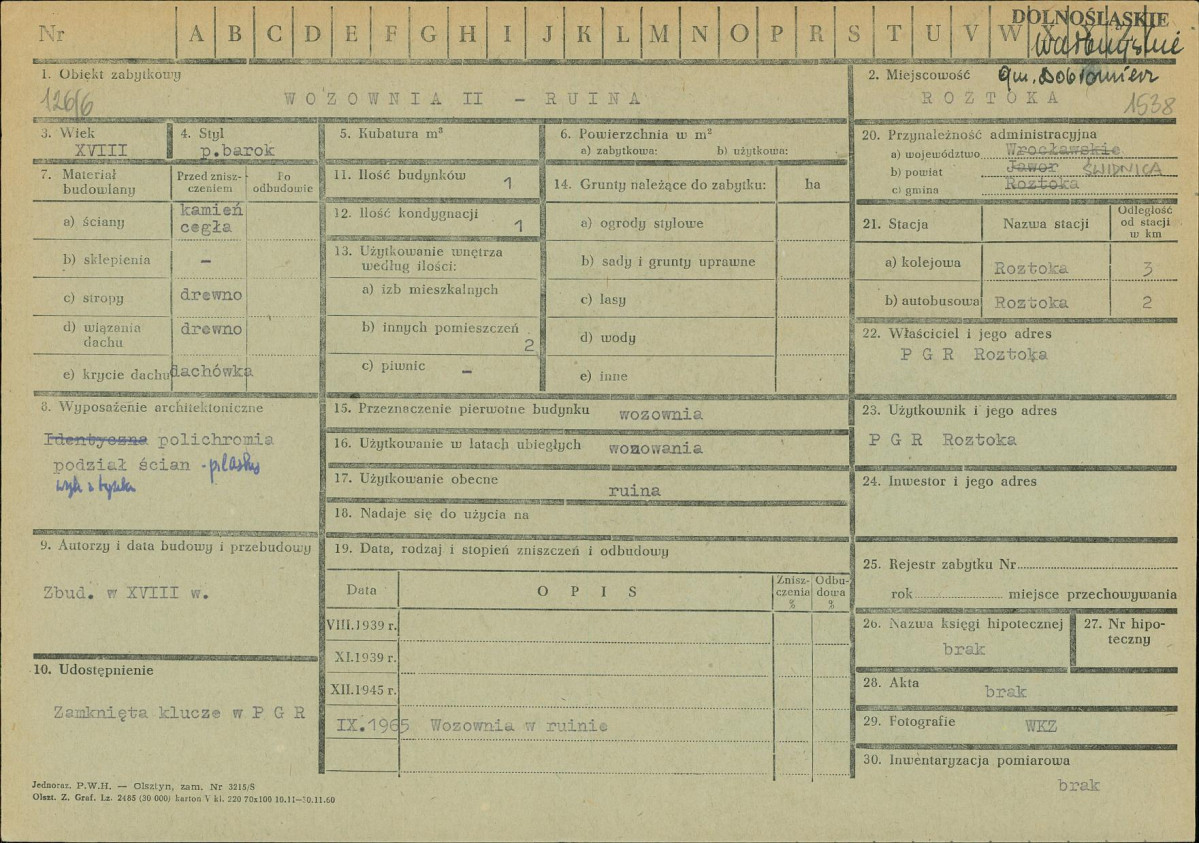 Nr A B C D E F G H I J K L M N O P R S T U V W X Y Z
DOLNOŚLĄSKIE
Wałbrzyskie
gm. Dobromierz
1. Obiekt zabytkowy
1266
WOZOWNIA II - RUINA
2. Miejscowość
ROZTOKA
1538
3. Wiek
XVIII
4. Styl
p.barok
5. Kubatura m³
6. Powierzchnia w m²
a) zabytkowa: b) użytkowa:
7. Materiał budowlany
Przed zniszczeniem
Po odbudowie
a) ściany
kamień
cegła
b) sklepienia -
c) stropy drewno
d) wiązania dachu drewno
e) krycie dachu dachówka
11. Ilość budynków 1
12. Ilość kondygnacji 1
13. Użytkowanie wnętrza
według ilości:
a) izb mieszkalnych
b) innych pomieszczeń 2
c) piwnic -
14. Grunty należące do zabytku: ha
a) ogrody stylowe
b) sady i grunty uprawne
c) lasy
d) wody
e) inne
20. Przynależność administracyjna
a) województwo Wrocławskie
b) powiat Jawor ŚWIDNICA
c) gmina Roztoka
21. Stacja
Nazwa stacji
Odległość od stacji w km
a) kolejowa Roztoka 3
b) autobusowa Roztoka 2
22. Właściciel i jego adres
P G R Roztoka
8. Wyposażenie architektoniczne
Identyczna polichromia
podział ścian - pilastry
15. Przeznaczenie pierwotne budynku wozownia
16. Użytkowanie w latach ubiegłych wozowania
17. Użytkowanie obecne ruina
18. Nadaje się do użycia na
23. Użytkownik i jego adres
P G R Roztoka
24. Inwestor i jego adres
9. Autorzy i data budowy i przebudowy
Zbud. w XVIII w.
10. Udostępnienie
Zamknięta klucze w P G R
19. Data, rodzaj i stopień zniszczeń i odbudowy
Data
OPIS
Zniszczenia %
Odbudowa %
VIII.1939 r.
XI.1939 r.
XII.1945 r.
IX.1965 Wozownia w ruinie
25. Rejestr zabytku Nr
rok miejsce przechowywania
26. Nazwa księgi hipotecznej
brak
27. Nr hipoteczny
28. Akta
brak
29. Fotografie
WKZ
30. Inwentaryzacja pomiarowa
brak
Jednoraz. P.W.H. — Olsztyn, zam. Nr 3215/S
Olszt. Z. Graf. Lz. 2485 (30 000) karton V kl. 220 70x100 10.11—30.11.60